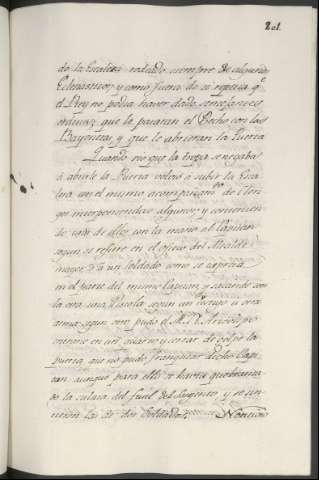 201.
de la Escalera rodeado siempre de algunos
Eclesiasticos, y como fuera de si repetia q.e
el Rey no podia haver dado semejantes
ordenes, que le pasaran el Pecho con las
Bayonetas, y que le abrieran la Puerta
Quando vio que la tropa se negaba
à abrirle la Puerta volvió à subir la Esca
lera con el mismo acompañam.to de Cleri
gos incorporandose algunos, y convenien
do uno de ellos con la mano al Capitan
segun se refiere en el oficio del Alcalde
mayor, ò à un Soldado como se expresa
en el parte del mismo Capitan, y sacando con
la otra una Pistola segun un testigo u otra
arma segun otro, pudo el M. R. Arzobispo
entrarse en un quarto y cerrar de golpe la
puerta, que no pudo franquear dicho Capi
tan aunque para ello se havia quebranta
do la culata del fusil del Sargento, y se un
las de dos Soldados. Noticioso